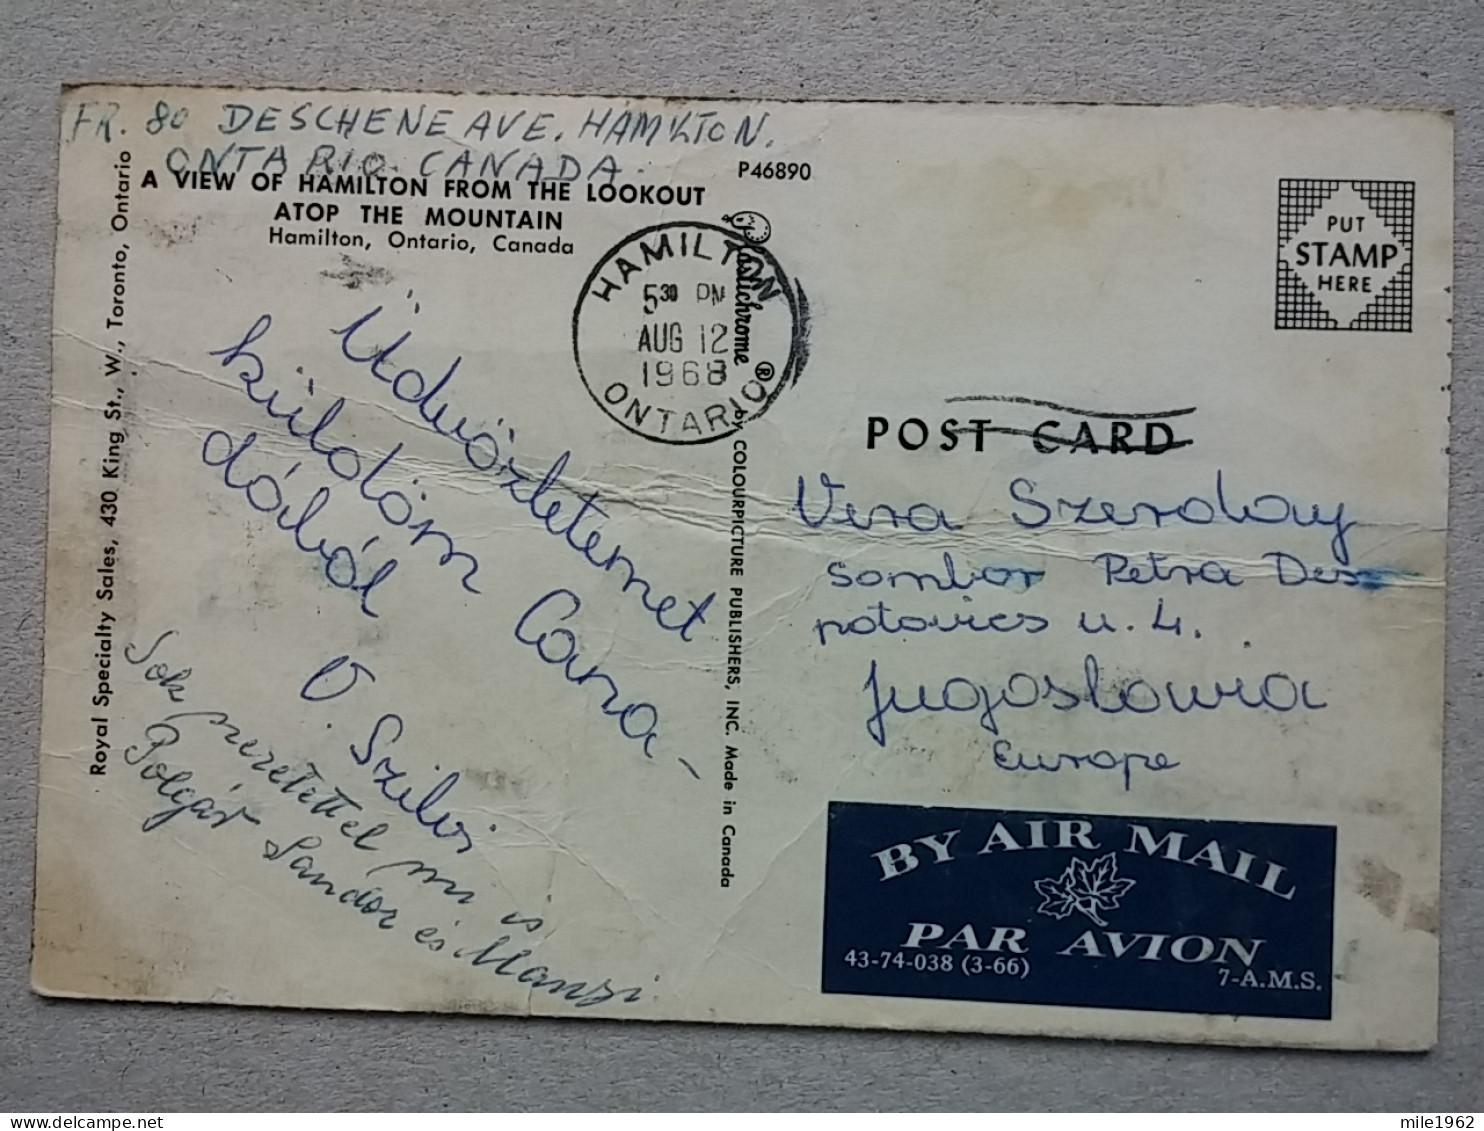 FR. 80 DESCHENE AVE. HAMILTON.
ONTARIO CANADA.
A VIEW OF HAMILTON FROM THE LOOKOUT
ATOP THE MOUNTAIN
Hamilton, Ontario, Canada
Royal Specialty Sales, 430 King St., W., Toronto, Ontario
P46890
Plastichrome®
by COLOURPICTURE PUBLISHERS, INC. Made in Canada
HAMILTON
5 30 PM
AUG 12
1968
ONTARIO
PUT
STAMP
HERE
POST CARD
Üdvözletemet
küldöm Cana-
dából
V. Szilvi
Sok szeretettel mi is
Polgár Sandor és Manzi
Vera Szerday
Sombor Petra Des
potovics u. 4.
Jugoslawia
Europe
BY AIR MAIL
PAR AVION
43-74-038 (3-66)
7-A.M.S.
mile1962